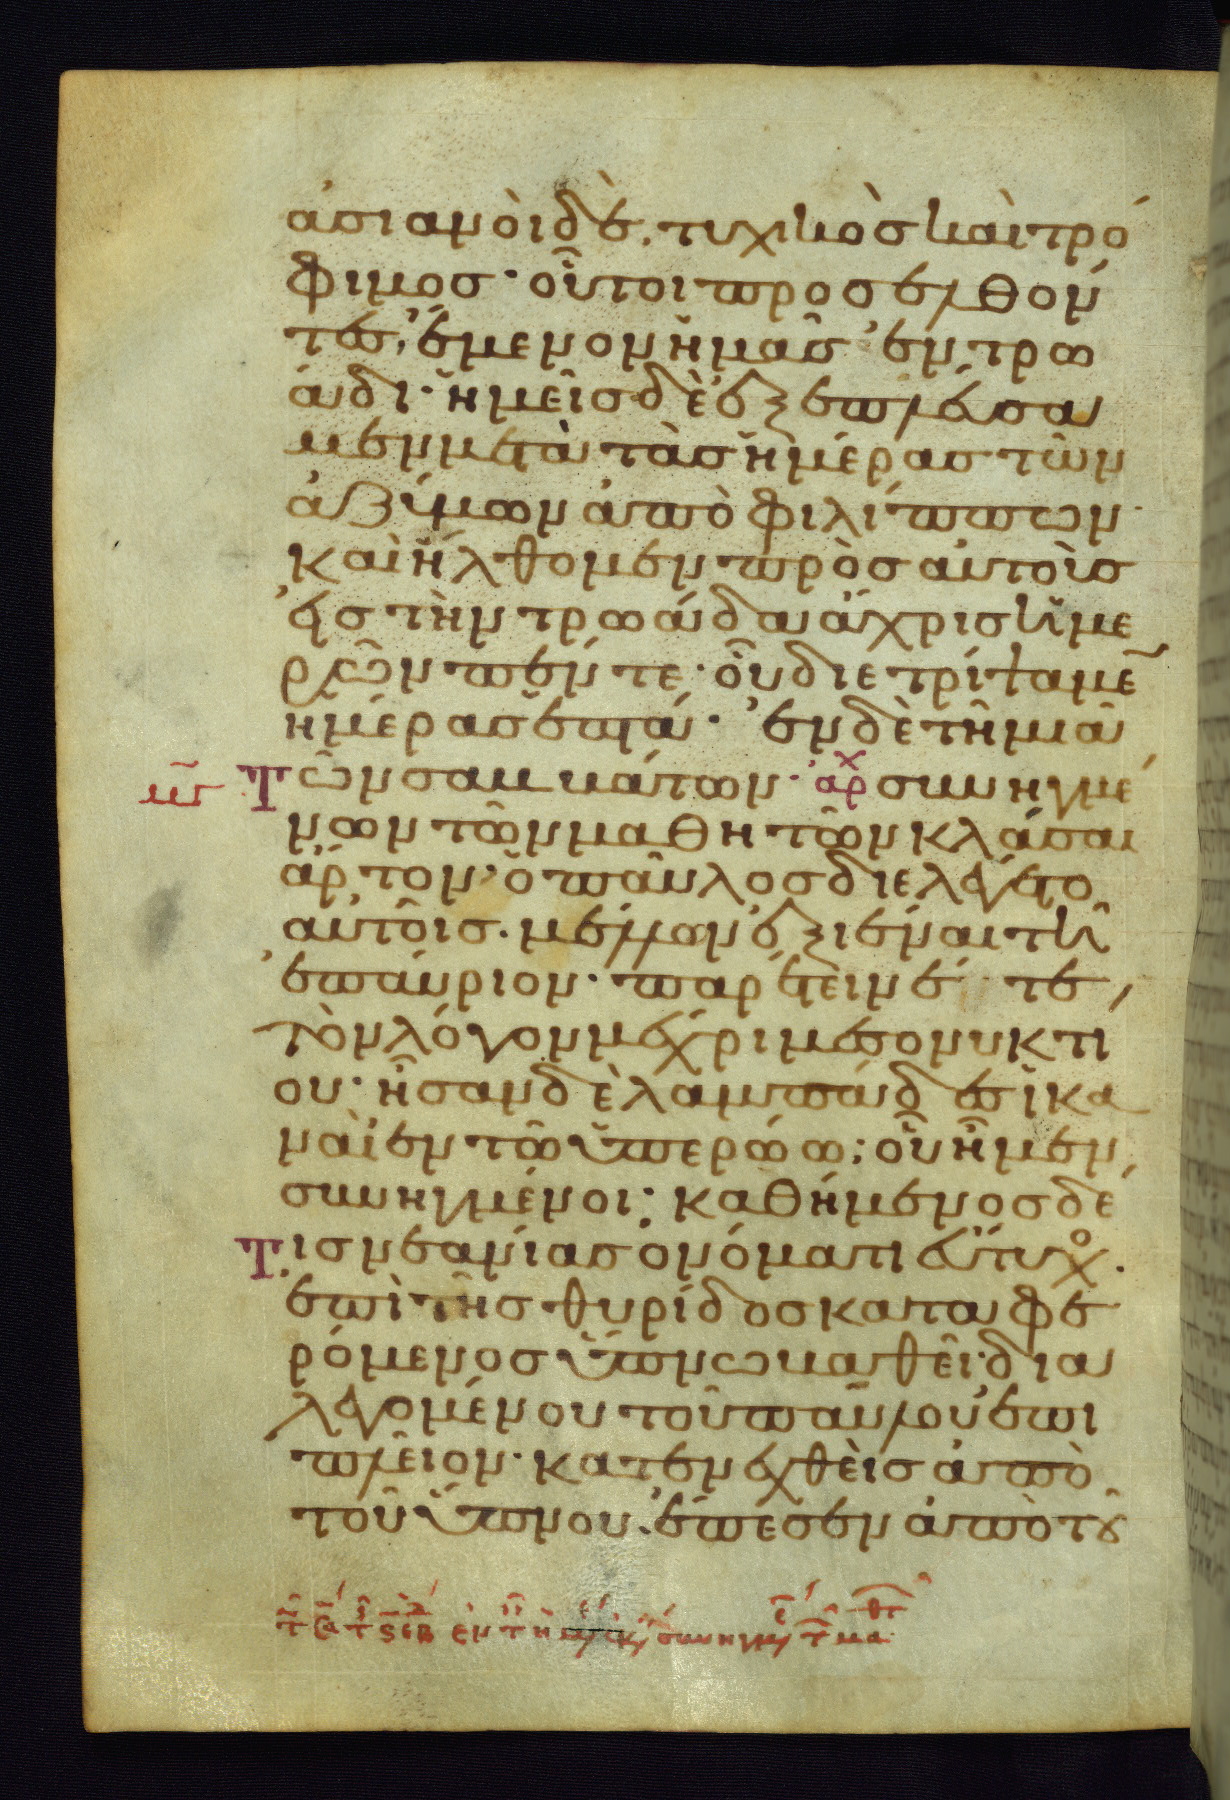 ἀσιανὸι δὲ, τυχικὸσ καὶ τρό
φιμοσ· οὗτοι προσελθόν
τες, ἔμενον ἡμᾶσ ἐν τρω
άδι· ἡμεῖσ δὲ ἐξεπλεύσα
μεν μετὰ τὰσ ἡμέρασ τῶν
ἀζύμων ἀπὸ φιλίππων·
καὶ ἤλθομεν πρὸσ αὐτοὺσ
εἰσ τὴν τρωάδα ἄχρισ ἡμε
ρῶν πέντε· οὗ διετρίψαμε̅
ἡμέρασ ἑπτά· ἐν δὲ τῆ μιᾶ
Τῶν σαββάτων· ἀρχ συνηγμέ
νων τῶν μαθητῶν κλάσαι
ἄρτον· ὁ παῦλοσ διελέγετο
αὐτοῖσ. μέλλων ἐξιέναι τῆ
ἐπαύριον· παρέτεινέ τε,
τὸν λόγον μέχρι μεσονυκτί
ου· ἦσαν δὲ λαμπάδεσ ἱκα
ναὶ ἐν τῶ ὑπερώω; οὗ ἦμεν,
συνηγμένοι· καθήμενοσ δέ
Τισ νεανίασ ὀνόματι εὔτυχο.
ἐπὶ τῆσ θυρίδοσ καταφε
ρόμενοσ ὕπνω βαθεῖ· δια
λεγομένου τοῦ παύλου ἐπι
πλεῖον· κατενεχθεὶσ ἀπὸ
τοῦ ὕπνου. ἔπεσεν ἀπὸ τοῦ